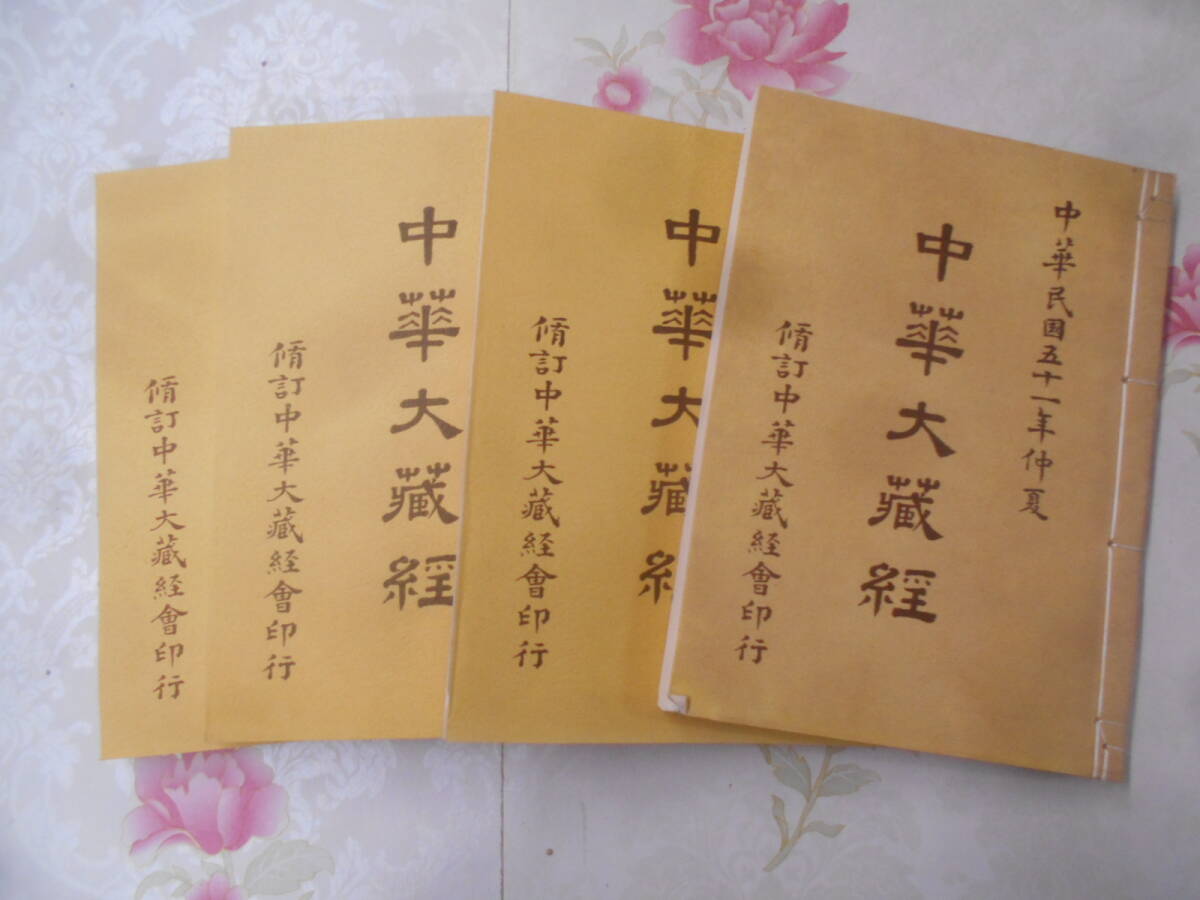 中華民国五十一年仲夏
中華大藏経
脩訂中華大藏経會印行
中華大藏経
脩訂中華大藏経會印行
中華大藏経
脩訂中華大藏経會印行
脩訂中華大藏経會印行